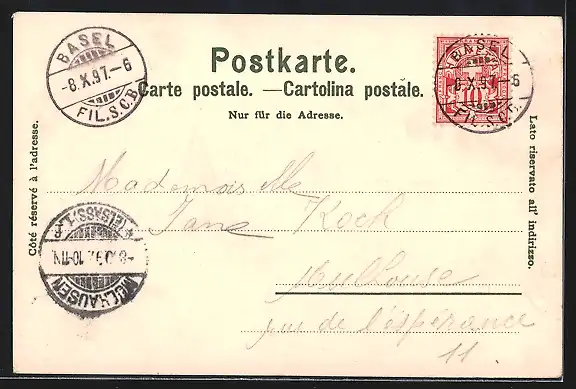 BASEL
-8.X.97.-6
FIL.S.C.B.
Postkarte.
Carte postale. — Cartolina postale.
Nur für die Adresse.
BASEL
-8.X.97.-6
FIL.S.C.B.
10
Côté réservé à l'adresse.
Lato riservato all' indirizzo.
Mademoiselle
Jane Koch
Mulhouse
rue de l'espérance
11
MÜLHAUSEN
(ELSASS) 1.
10-11N.